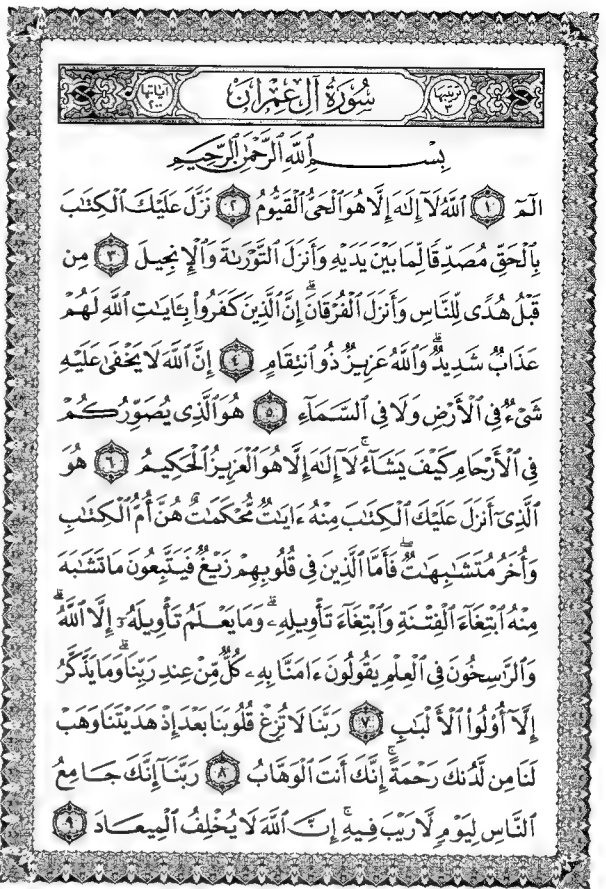 ترتيبها ٣ سُورَةُ آلِ عِمْرَان آياتها ٢٠٠
بِسْمِ ٱللَّهِ ٱلرَّحْمَٰنِ ٱلرَّحِيمِ
الٓمٓ ١ ٱللَّهُ لَآ إِلَٰهَ إِلَّا هُوَ ٱلْحَىُّ ٱلْقَيُّومُ ٢ نَزَّلَ عَلَيْكَ ٱلْكِتَٰبَ
بِٱلْحَقِّ مُصَدِّقًا لِّمَا بَيْنَ يَدَيْهِ وَأَنزَلَ ٱلتَّوْرَىٰةَ وَٱلْإِنجِيلَ ٣ مِن
قَبْلُ هُدًى لِّلنَّاسِ وَأَنزَلَ ٱلْفُرْقَانَۗ إِنَّ ٱلَّذِينَ كَفَرُوا۟ بِـَٔايَٰتِ ٱللَّهِ لَهُمْ
عَذَابٌ شَدِيدٌۗ وَٱللَّهُ عَزِيزٌ ذُو ٱنتِقَامٍ ٤ إِنَّ ٱللَّهَ لَا يَخْفَىٰ عَلَيْهِ
شَىْءٌ فِى ٱلْأَرْضِ وَلَا فِى ٱلسَّمَآءِ ٥ هُوَ ٱلَّذِى يُصَوِّرُكُمْ
فِى ٱلْأَرْحَامِ كَيْفَ يَشَآءُۚ لَآ إِلَٰهَ إِلَّا هُوَ ٱلْعَزِيزُ ٱلْحَكِيمُ ٦ هُوَ
ٱلَّذِىٓ أَنزَلَ عَلَيْكَ ٱلْكِتَٰبَ مِنْهُ ءَايَٰتٌ مُّحْكَمَٰتٌ هُنَّ أُمُّ ٱلْكِتَٰبِ
وَأُخَرُ مُتَشَٰبِهَٰتٌۖ فَأَمَّا ٱلَّذِينَ فِى قُلُوبِهِمْ زَيْغٌ فَيَتَّبِعُونَ مَا تَشَٰبَهَ
مِنْهُ ٱبْتِغَآءَ ٱلْفِتْنَةِ وَٱبْتِغَآءَ تَأْوِيلِهِۦۗ وَمَا يَعْلَمُ تَأْوِيلَهُۥٓ إِلَّا ٱللَّهُۗ
وَٱلرَّٰسِخُونَ فِى ٱلْعِلْمِ يَقُولُونَ ءَامَنَّا بِهِۦ كُلٌّ مِّنْ عِندِ رَبِّنَاۗ وَمَا يَذَّكَّرُ
إِلَّآ أُو۟لُوا۟ ٱلْأَلْبَٰبِ ٧ رَبَّنَا لَا تُزِغْ قُلُوبَنَا بَعْدَ إِذْ هَدَيْتَنَا وَهَبْ
لَنَا مِن لَّدُنكَ رَحْمَةًۚ إِنَّكَ أَنتَ ٱلْوَهَّابُ ٨ رَبَّنَآ إِنَّكَ جَامِعُ
ٱلنَّاسِ لِيَوْمٍ لَّا رَيْبَ فِيهِۚ إِنَّ ٱللَّهَ لَا يُخْلِفُ ٱلْمِيعَادَ ٩